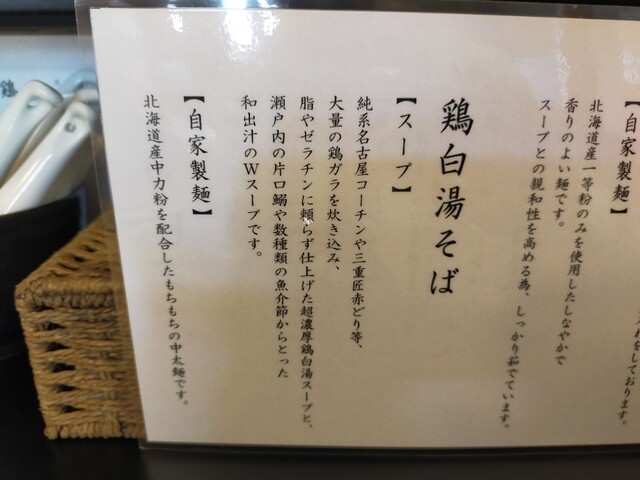 【自家製麺】
北海道産一等粉のみを使用したしなやかで
香りのよい麺です。
スープとの親和性を高める為、しっかり茹でています。
鶏白湯そば
【スープ】
純系名古屋コーチンや三重匠赤どり等、
大量の鶏ガラを炊き込み、
脂やゼラチンに頼らず仕上げた超濃厚鶏白湯スープと、
瀬戸内の片口鰯や数種類の魚介節からとった
和出汁のWスープです。
【自家製麺】
北海道産中力粉を配合したもちもちの中太麺です。